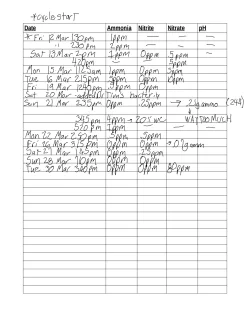 *cycle start
Date Ammonia Nitrite Nitrate pH
* Fri 12 Mar 130pm 1ppm — — —
" 230pm 2ppm — — —
Sat 13 Mar 2pm 1ppm 0ppm 5ppm —
420pm 5ppm
Mon 15 Mar 1125am 1ppm 0ppm 5ppm
Tue 16 Mar 215pm 0ppm 10ppm
Fri 19 Mar 1240pm 0ppm
Sat 20 Mar - added Tims bacteria
Sun 21 Mar 235pm 0ppm 25ppm → .21g ammo (248)
345pm 4ppm → 20% WC WAY TOO MUCH
520pm 1ppm
Mon 22 Mar 250pm 5ppm
Fri 26 Mar 315pm 0ppm 0ppm → 0.1g amm
Sat 27 Mar 145pm 0ppm 25ppm
Sun 28 Mar 110pm 0ppm 0ppm
Tue 30 Mar 340pm 0ppm 0ppm 80ppm